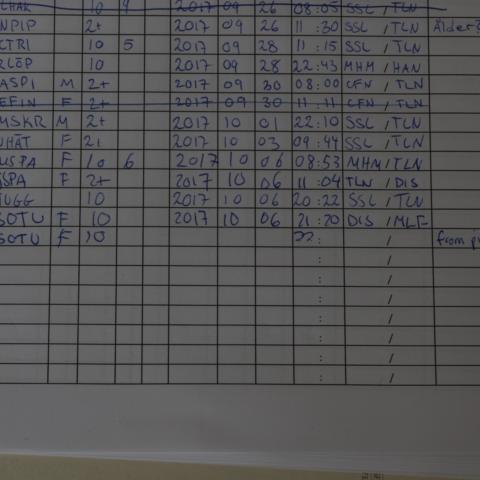 10 9 2017 09 26 08:05 SSL / TLN
NPIP 2+ 2017 09 26 11:30 SSL / TLN
CTRI 10 5 2017 09 28 11:15 SSL / TLN
10 2017 09 28 22:43 MHM / HAN
ASPI M 2+ 2017 09 30 08:00 CFN / TLN
EFIN F 2+ 2017 09 30 11:11 CFN / TLN
MSKR M 2+ 2017 10 01 22:10 SSL / TLN
UHÄT F 2+ 2017 10 03 09:44 SSL / TLN
USPA F 10 6 2017 10 06 08:53 MHM / TLN
SPA F 2+ 2017 10 06 11:04 TLN / DIS
TUGG 10 2017 10 06 20:22 SSL / TLN
SOTU F 10 2017 10 06 21:20 DIS /
SOTU F 10 22: / from
: /
: /
: /
: /
: /
: /
: /